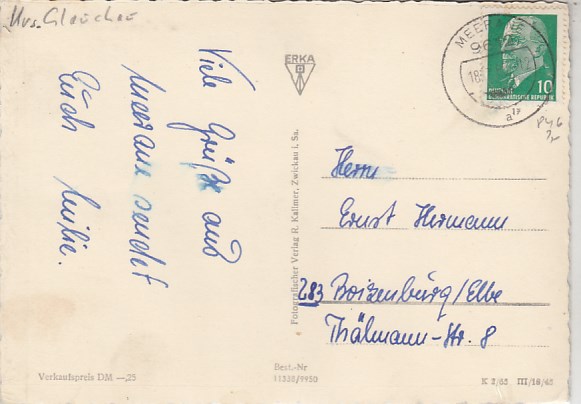 Krs. Glauchau
Viele Grüße aus
Meerane sendet
Euch
ERKA
Fotografischer Verlag R. Kallmer, Zwickau i. Sa.
MEERANE
10
DEUTSCHE DEMOKRATISCHE REPUBLIK
Herrn
Ernst Hermann
283 Boizenburg/Elbe
Thälmann-Str. 8
Verkaufspreis DM —,25
Best.-Nr
K 2/63 III/18/48